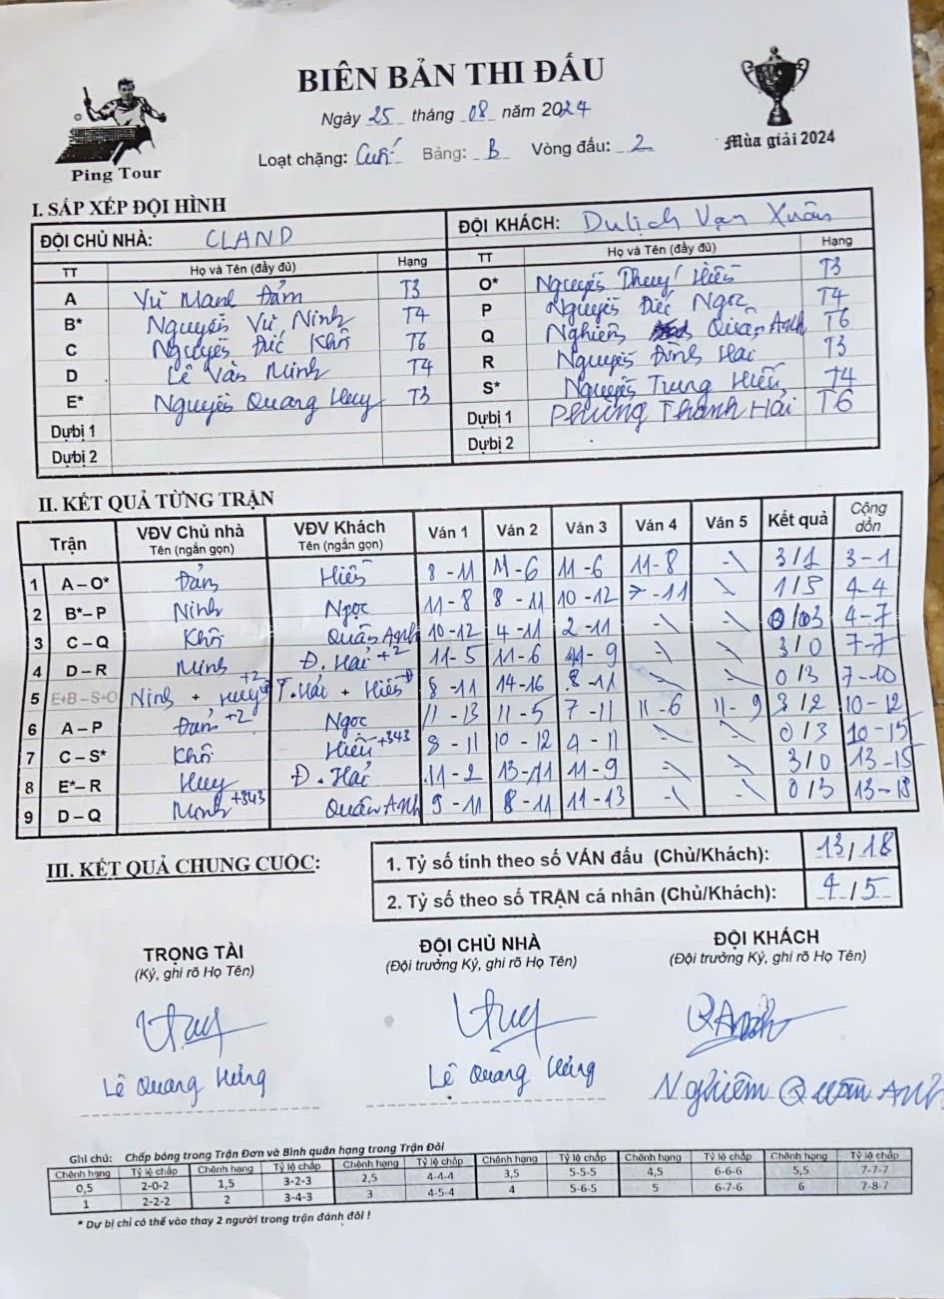 BIÊN BẢN THI ĐẤU
Ngày 25 tháng 08 năm 2024
Loạt chặng: Bảng: B Vòng đấu: 2
Ping Tour
Mùa giải 2024
I. SẮP XẾP ĐỘI HÌNH
ĐỘI CHỦ NHÀ: CLAND ĐỘI KHÁCH: Du lịch Vạn Xuân
TT Họ và Tên (đầy đủ) Hạng TT Họ và Tên (đầy đủ) Hạng
A Vũ Mạnh Đảm T3 O* Nguyễn Hiến T3
B* Nguyễn Vũ Ninh T4 P Nguyễn Đức Ngọc T4
C Nguyễn Đức Khôi T6 Q Nghiêm Quân Anh T6
D Lê Văn Minh T4 R Nguyễn Đình Hải T3
E* Nguyễn Quang Huy T3 S* Nguyễn Trung Hiếu T4
Dự bị 1 Dự bị 1 Phùng Thanh Hải T6
Dự bị 2 Dự bị 2
II. KẾT QUẢ TỪNG TRẬN
Trận VĐV Chủ nhà Tên (ngắn gọn) VĐV Khách Tên (ngắn gọn) Ván 1 Ván 2 Ván 3 Ván 4 Ván 5 Kết quả Cộng dồn
1 A – O* Đảm Hiến 8 - 11 11 - 6 11 - 6 11 - 8 - 3/1 3 - 1
2 B* – P Ninh Ngọc 11 - 8 8 - 11 10 - 12 7 - 11 1/3 4 - 4
3 C – Q Khôi Quân Anh 10 - 12 4 - 11 2 - 11 - - 0/3 4 - 7
4 D – R Minh Đ. Hải +2 11 - 5 11 - 6 11 - 9 - - 3/0 7 - 7
5 E+B – S+O Ninh + Huy +2 T. Hải + Hiến 8 - 11 14 - 16 8 - 11 - - 0/3 7 - 10
6 A – P Đảm +2 Ngọc 11 - 13 11 - 5 7 - 11 11 - 6 11 - 9 3/2 10 - 12
7 C – S* Khôi Hiếu +343 8 - 11 10 - 12 4 - 11 - - 0/3 10 - 15
8 E* – R Huy Đ. Hải 11 - 2 13 - 11 11 - 9 - - 3/0 13 - 15
9 D – Q Minh +343 Quân Anh 9 - 11 8 - 11 11 - 13 - - 0/3 13 - 18
III. KẾT QUẢ CHUNG CUỘC:
1. Tỷ số tính theo số VÁN đấu (Chủ/Khách): 13/18
2. Tỷ số theo số TRẬN cá nhân (Chủ/Khách): 4/5
TRỌNG TÀI ĐỘI CHỦ NHÀ ĐỘI KHÁCH
(Ký, ghi rõ Họ Tên) (Đội trưởng Ký, ghi rõ Họ Tên) (Đội trưởng Ký, ghi rõ Họ Tên)
Lê Quang Hưng Lê Quang Hưng Nghiêm Quân Anh
Ghi chú: Chấp bóng trong Trận Đơn và Bình quân hạng trong Trận Đôi
Chênh hạng Tỷ lệ chấp Chênh hạng Tỷ lệ chấp Chênh hạng Tỷ lệ chấp Chênh hạng Tỷ lệ chấp Chênh hạng Tỷ lệ chấp Chênh hạng Tỷ lệ chấp
0,5 2-0-2 1,5 3-2-3 2,5 4-4-4 3,5 5-5-5 4,5 6-6-6 5,5 7-7-7
1 2-2-2 2 3-4-3 3 4-5-4 4 5-6-5 5 6-7-6 6 7-8-7
* Dự bị chỉ có thể vào thay 2 người trong trận đánh đôi !